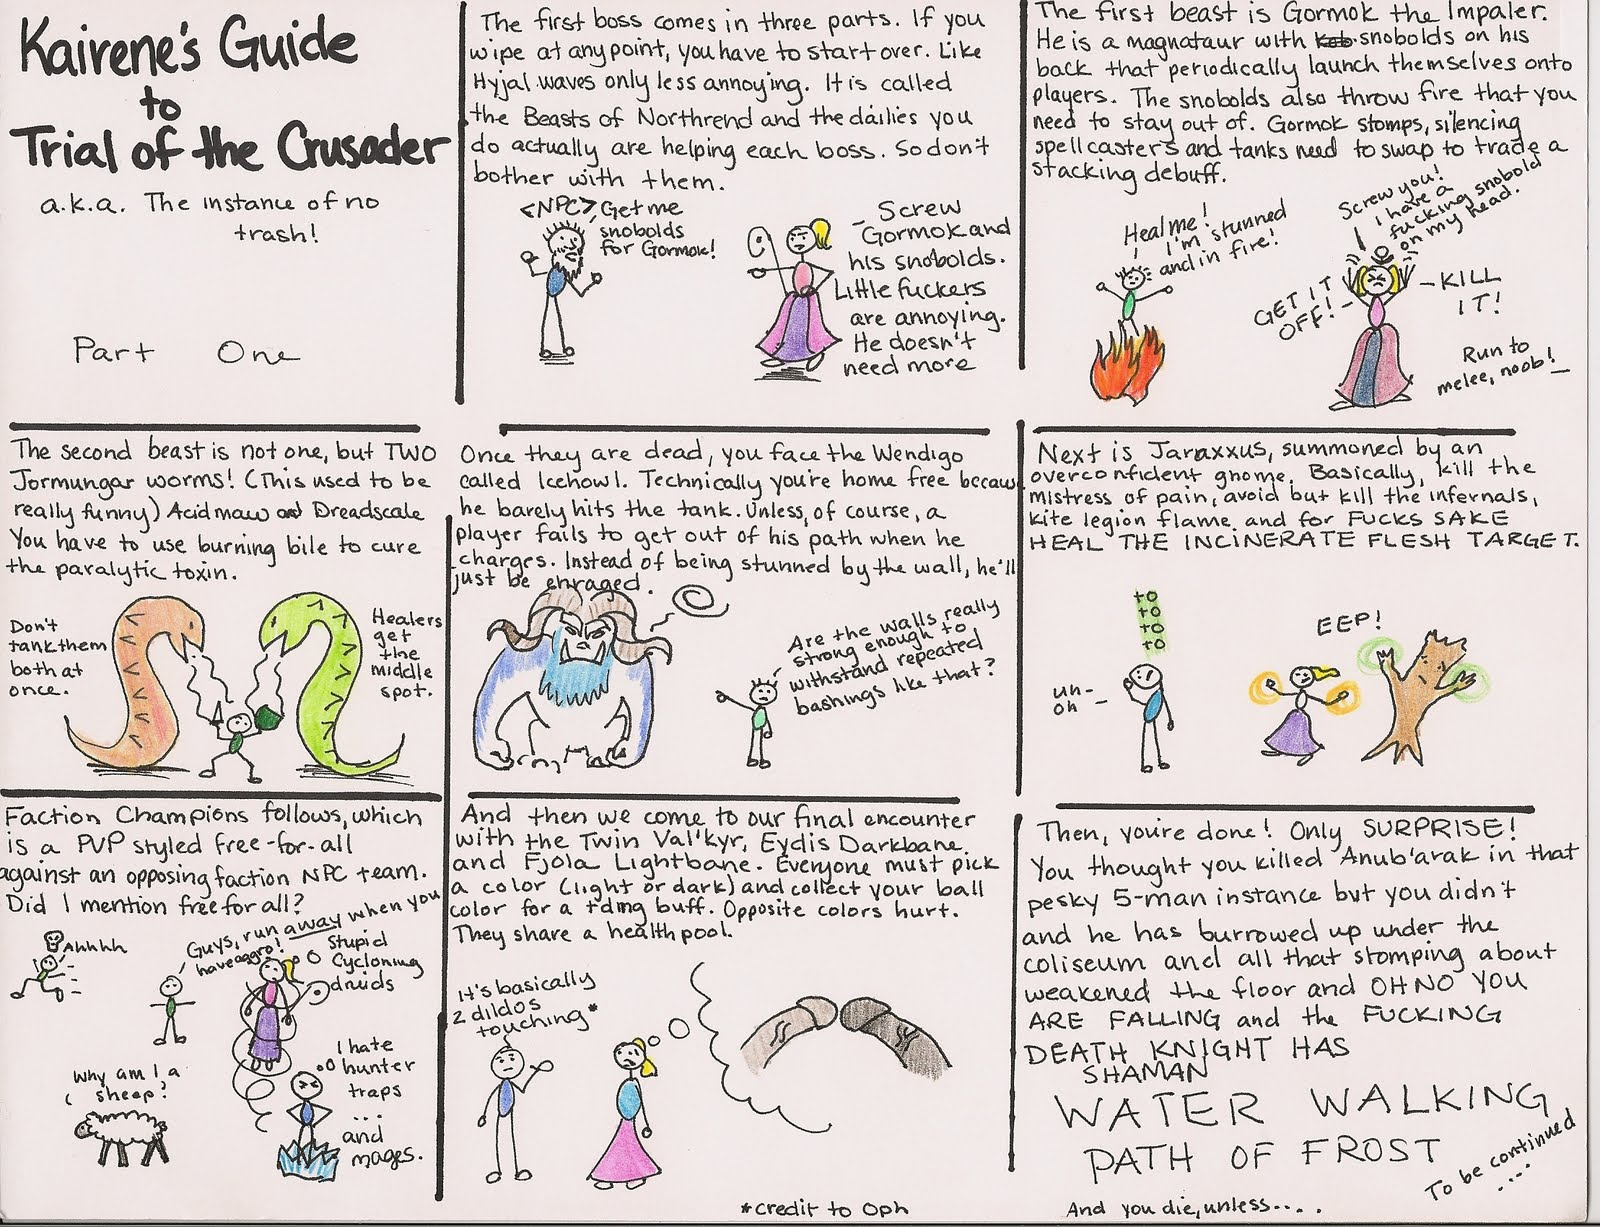 Kairene's Guide
to
Trial of the Crusader
a.k.a. The instance of no
trash!
Part One
The first boss comes in three parts. If you
wipe at any point, you have to start over. Like
Hyjal waves only less annoying. It is called
the Beasts of Northrend and the dailies you
do actually are helping each boss. So don't
bother with them.
<NPC> Get me
snobolds
for Gormok!
Screw
Gormok and
his snobolds.
Little fuckers
are annoying.
He doesn't
need more
The first beast is Gormok the Impaler.
He is a magnataur with snobolds on his
back that periodically launch themselves onto
players. The snobolds also throw fire that you
need to stay out of. Gormok stomps, silencing
spellcasters and tanks need to swap to trade a
stacking debuff.
Heal me!
I'm stunned
and in fire!
Screw you!
I have a
fucking snobold
on my head.
GET IT
OFF!
KILL
IT!
Run to
melee, noob!
The second beast is not one, but TWO
Jormungar worms! (This used to be
really funny) Acidmaw and Dreadscale
You have to use burning bile to cure
the paralytic toxin.
Don't
tank them
both at
once.
Healers
get
the
middle
spot.
Once they are dead, you face the Wendigo
called Icehowl. Technically you're home free becaus
he barely hits the tank. Unless, of course, a
player fails to get out of his path when he
charges. Instead of being stunned by the wall, he'll
just be enraged.
Are the walls really
strong enough to
withstand repeated
bashings like that?
Next is Jaraxxus, summoned by an
overconfident gnome. Basically, kill the
mistress of pain, avoid but kill the infernals,
kite legion flame, and for FUCKS SAKE
HEAL THE INCINERATE FLESH TARGET.
+0
+0
+0
+0
uh-
oh
EEP!
Faction Champions follows, which
is a PVP styled free-for-all
against an opposing faction NPC team.
Did I mention free for all?
Ahhhh
Guys, run away when you
have aggro!
Stupid
Cycloning
druids
Why am I a
sheep?
I hate
hunter
traps
...
and
mages.
And then we come to our final encounter
with the Twin Val'kyr, Eydis Darkbane
and Fjola Lightbane. Everyone must pick
a color (light or dark) and collect your ball
color for a +dmg buff. Opposite colors hurt.
They share a health pool.
It's basically
2 dildos
touching*
*credit to Oph
Then, you're done! Only SURPRISE!
You thought you killed Anub'arak in that
pesky 5-man instance but you didn't
and he has burrowed up under the
coliseum and all that stomping about
weakened the floor and OH NO YOU
ARE FALLING and the FUCKING
DEATH KNIGHT HAS
SHAMAN
WATER WALKING
PATH OF FROST
To be continued
....
And you die, unless....